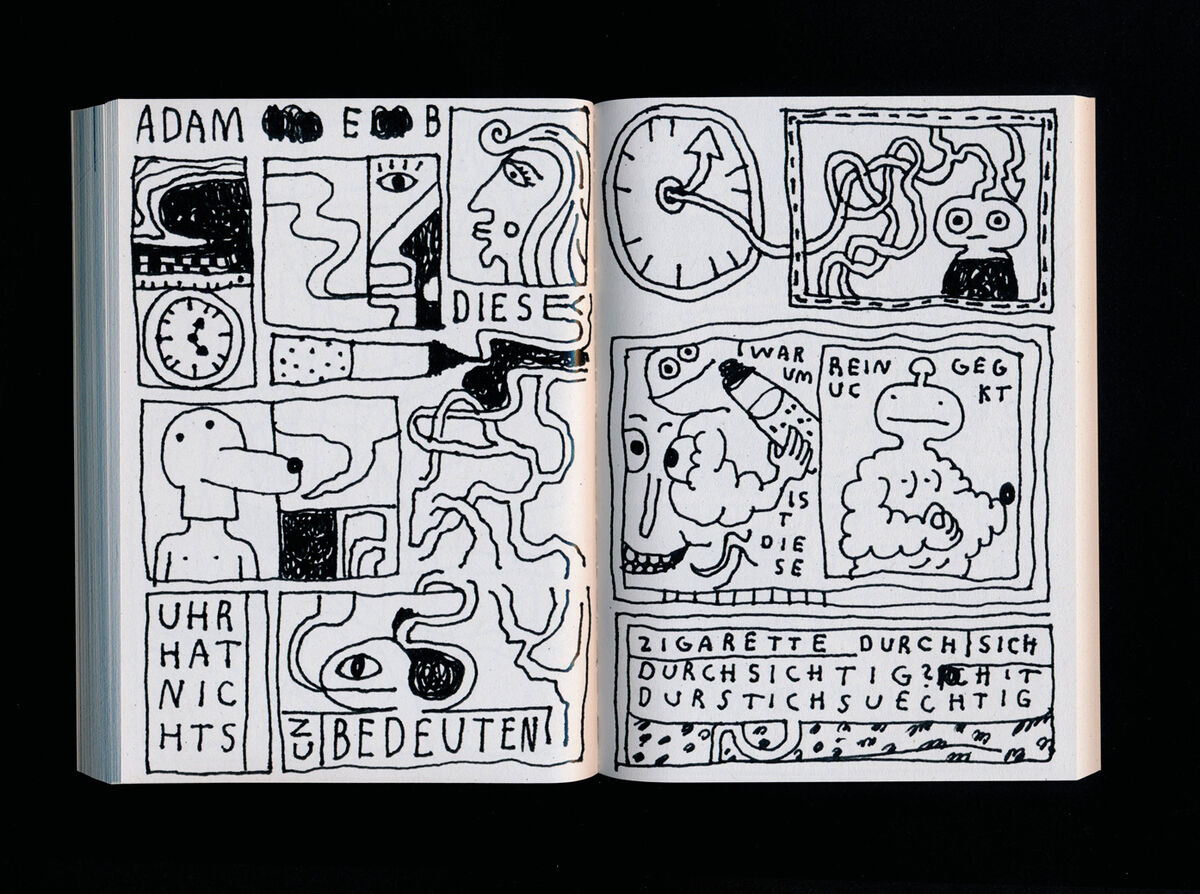 ADAM E B
DIESE
UHR
HAT
NIC
HTS
ZU
BEDEUTEN
WAR
UM
IS
T
DIE
SE
REIN GEG
UC KT
ZIGARETTE DURCHSICH
DURCHSICHTIG? CHIT
DURSTICHSUECHTIG